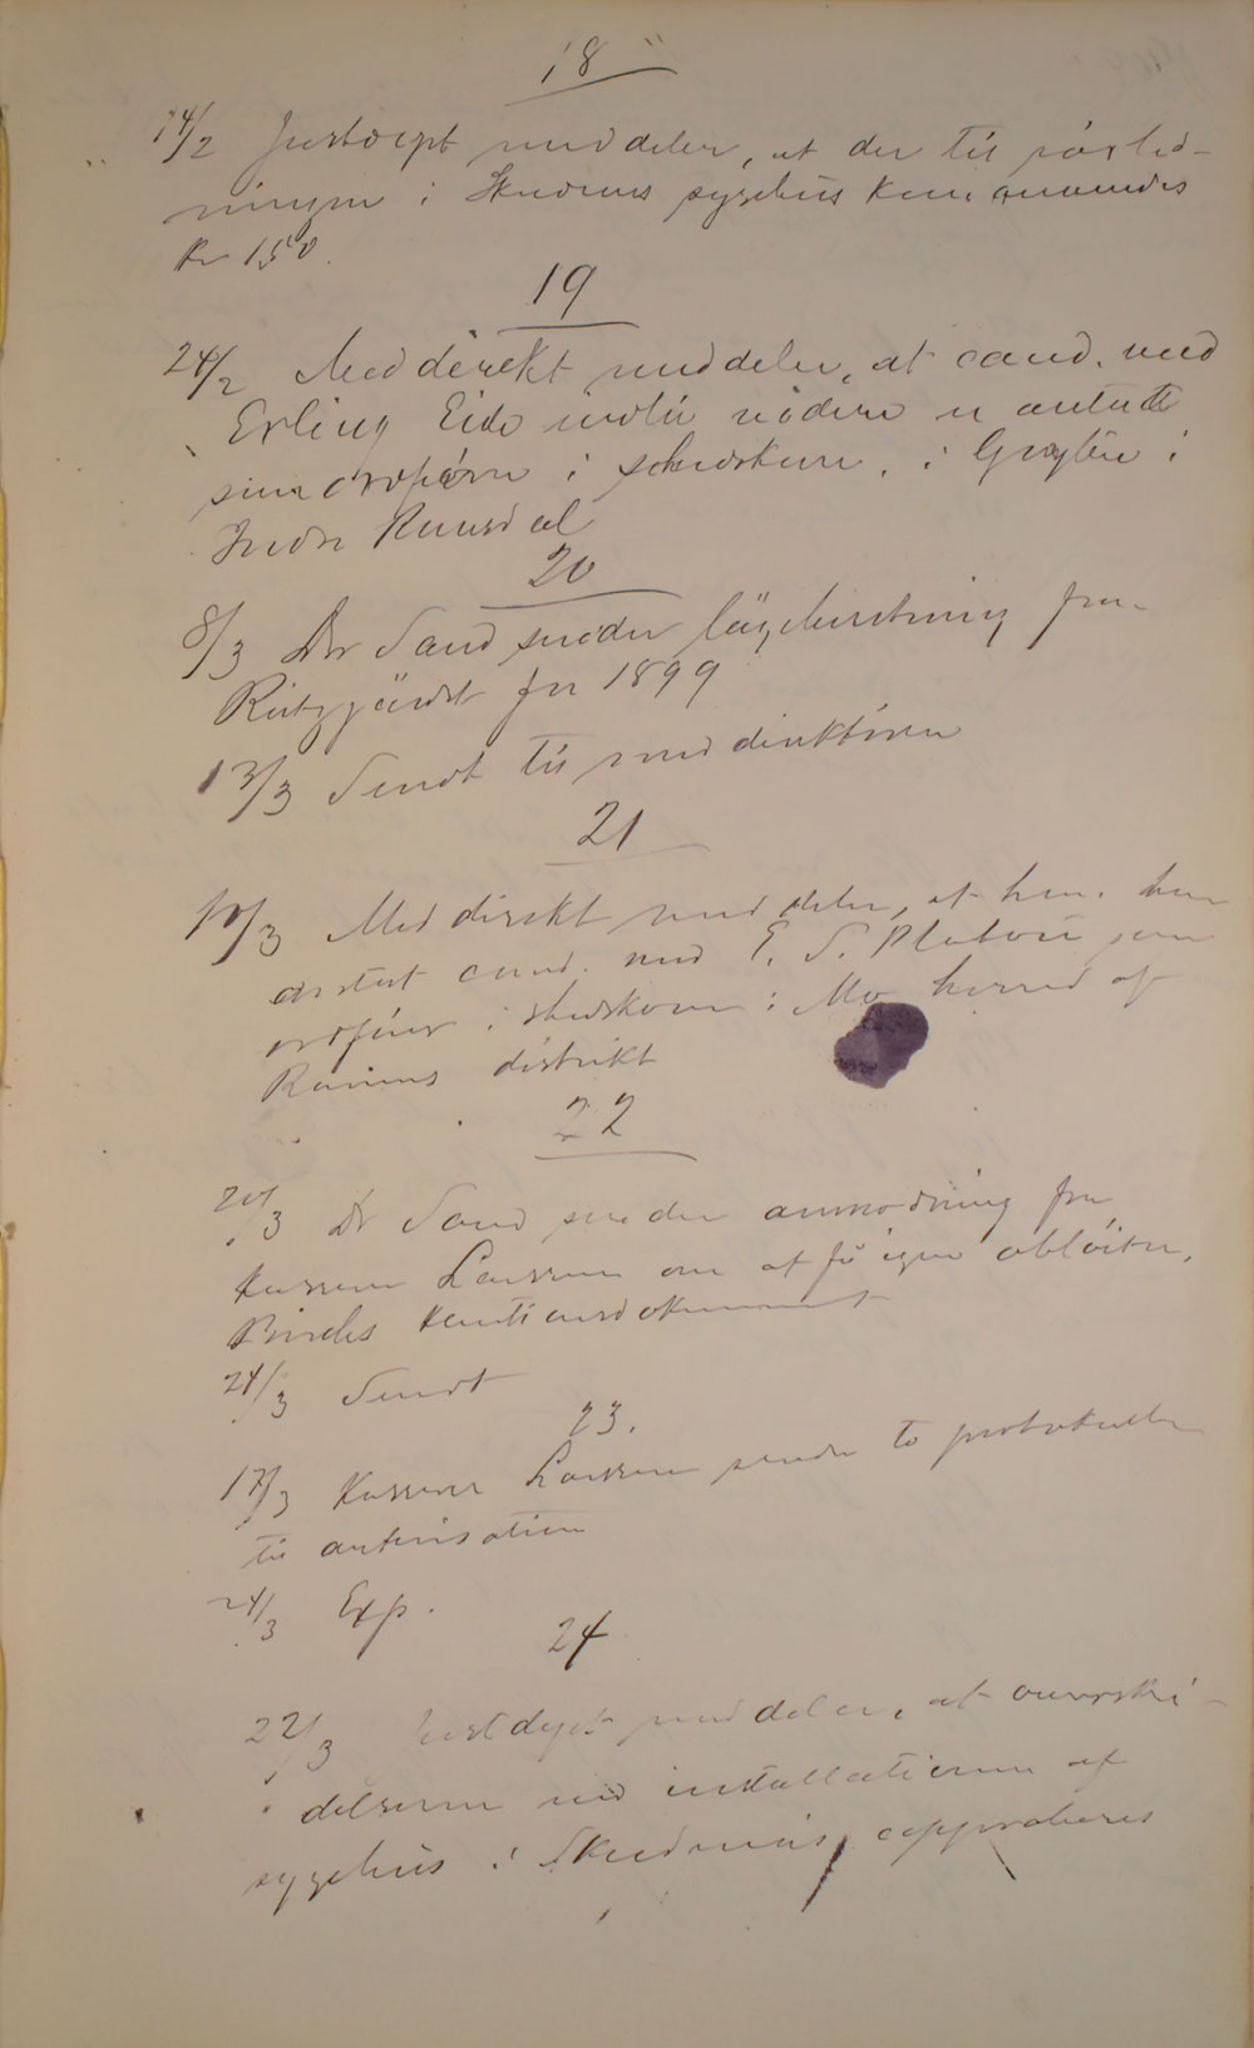 18
14/2 Justdept meddeler, at der til rørled-
ningen i Skudenes sygehus kan anvendes
Kr 150.
19
24/2 Meddirekt meddeler, at cand. med
Erling Eide indtil videre er antatt
som i i
Indre Rumsdal
20
8/3 Dr Sand sender lægeberetning fra
for 1899
13/3 Sendt til meddirektøren
21
10/3 Meddirekt meddeler, at han har
ansat cand. med E. S. Platou som
i Mo herred af
Ranens distrikt
22
20/3 Dr Sand sender anmodning fra
kasserer Larssen om at få igen
kautionsdokument
24/3 Sendt
23.
17/3 Kasserer Larssen sender to protokoller
til autorisation
24/3 Exp.
24
22/3 Justdept meddeler, at overskri-
delserne ved installationen af
sygehus i Skudenes approberes